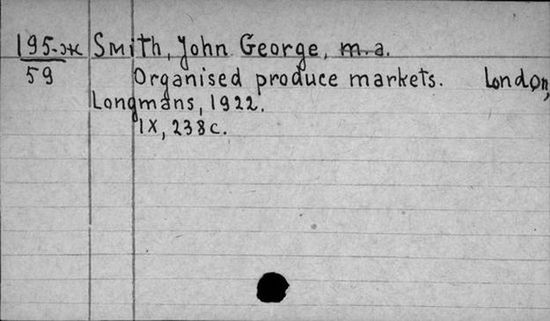 195-ж Smith, John George, m.a.
59 Organised produce markets. London,
Longmans, 1922.
IX, 238c.